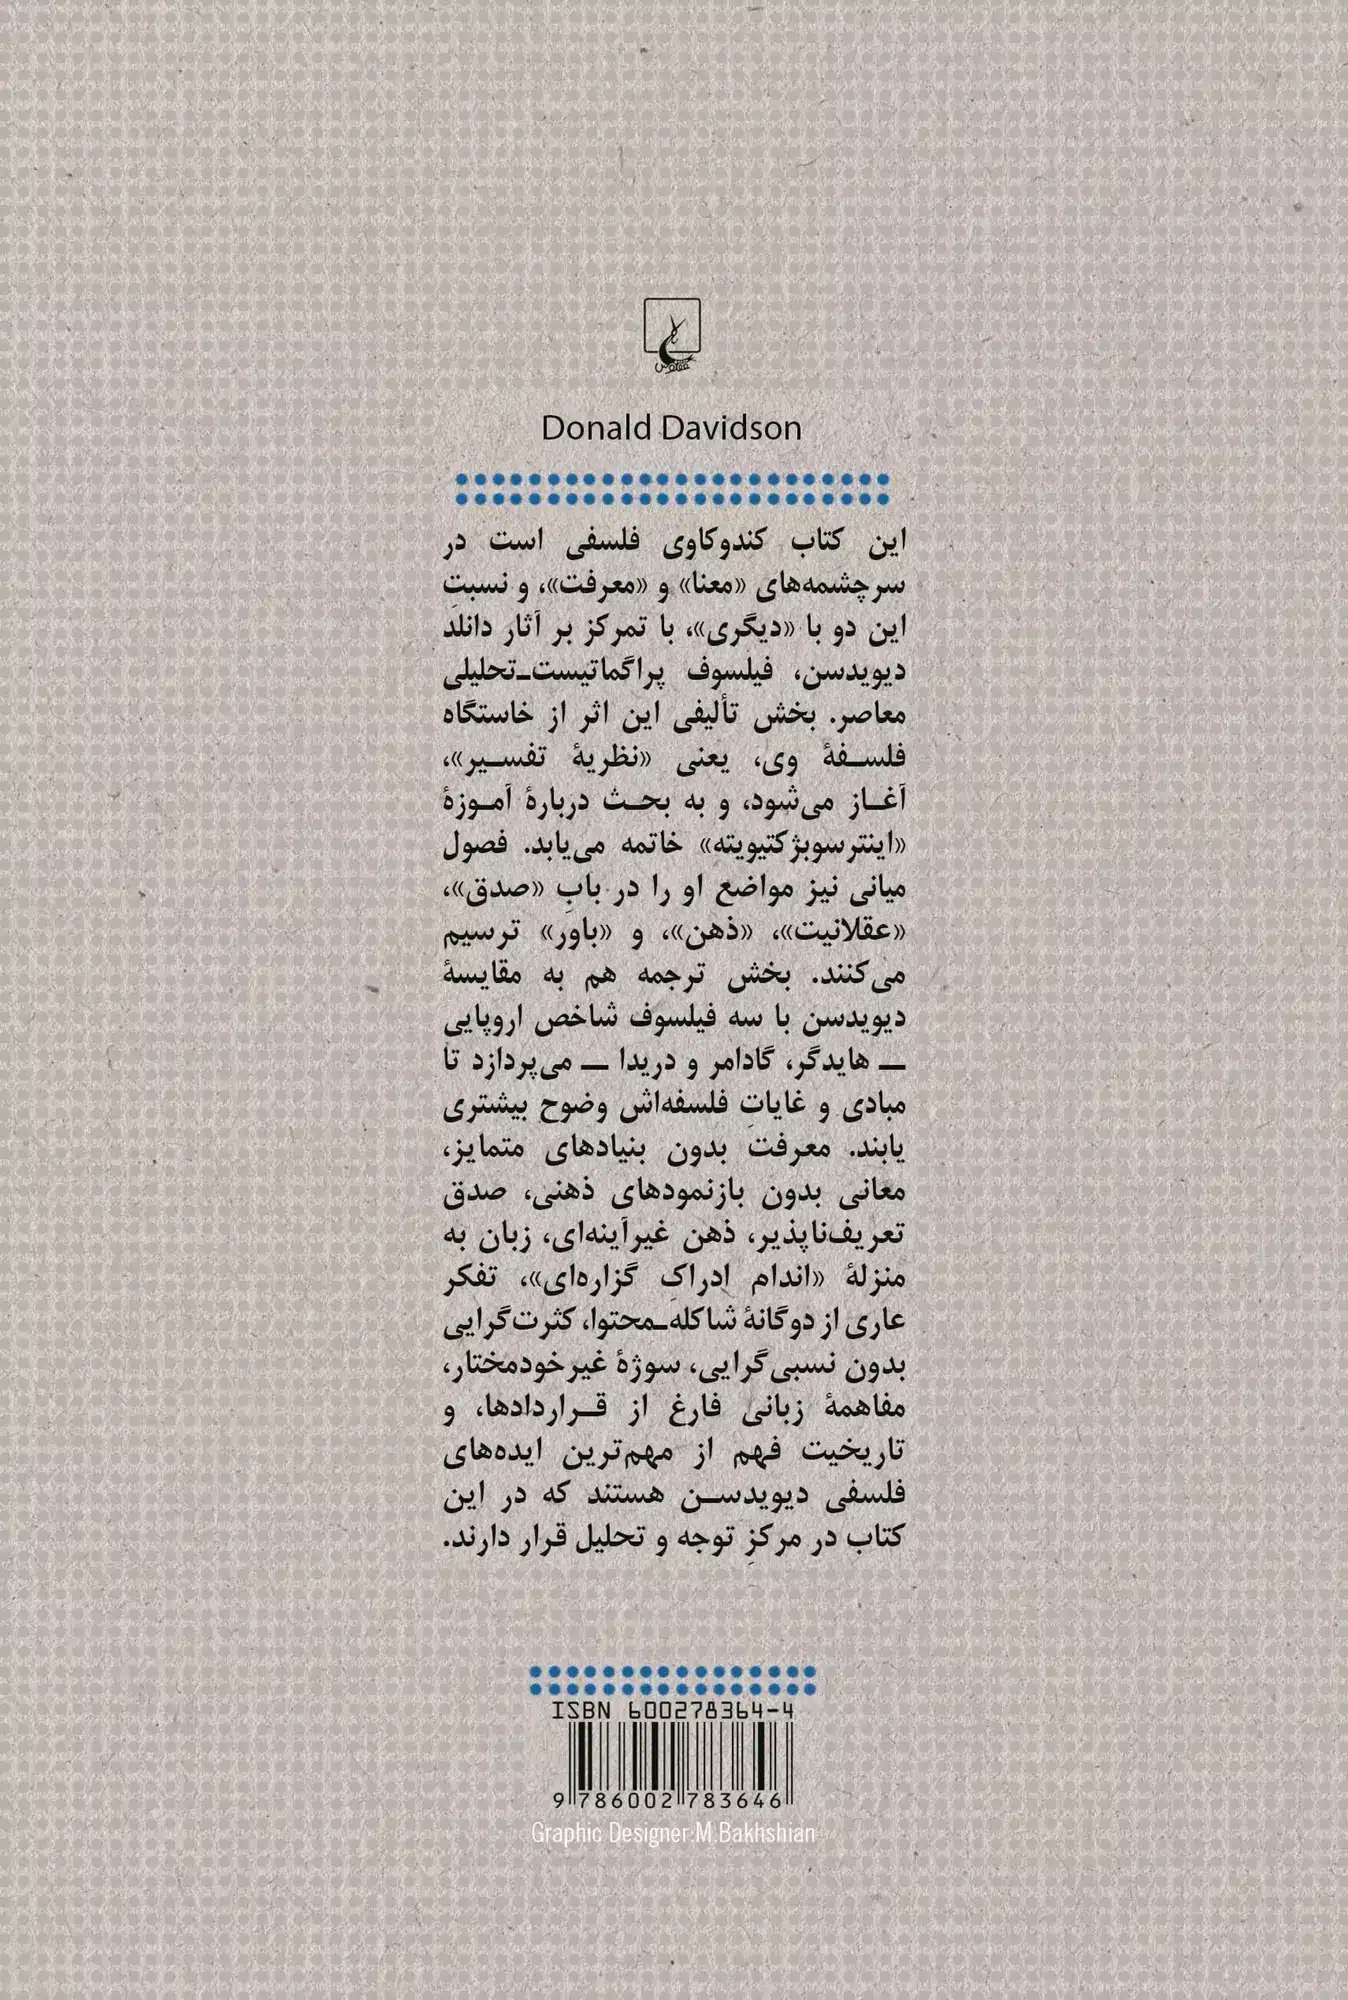 ققنوس
Donald Davidson
این کتاب کندوکاوی فلسفی است در
سرچشمه‌های «معنا» و «معرفت»، و نسبتِ
این دو با «دیگری»، با تمرکز بر آثار دانلد
دیویدسن، فیلسوف پراگماتیست‌ـ‌تحلیلی
معاصر. بخش تألیفی این اثر از خاستگاه
فلسفهٔ وی، یعنی «نظریهٔ تفسیر»،
آغاز می‌شود، و به بحث دربارهٔ آموزهٔ
«اینترسوبژکتیویته» خاتمه می‌یابد. فصول
میانی نیز مواضع او را در بابِ «صدق»،
«عقلانیت»، «ذهن»، و «باور» ترسیم
می‌کنند. بخش ترجمه هم به مقایسهٔ
دیویدسن با سه فیلسوف شاخص اروپایی
ــ هایدگر، گادامر و دریدا ــ می‌پردازد تا
مبادی و غایاتِ فلسفه‌اش وضوح بیشتری
یابند. معرفت بدون بنیادهای متمایز،
معانی بدون بازنمودهای ذهنی، صدق
تعریف‌ناپذیر، ذهن غیرآینه‌ای، زبان به
منزلهٔ «اندام ادراکِ گزاره‌ای»، تفکر
عاری از دوگانهٔ شاکله‌ـ‌محتوا، کثرت‌گرایی
بدون نسبی‌گرایی، سوژهٔ غیرخودمختار،
مفاهمهٔ زبانی فارغ از قراردادها، و
تاریخیت فهم از مهم‌ترین ایده‌های
فلسفی دیویدسن هستند که در این
کتاب در مرکزِ توجه و تحلیل قرار دارند.
ISBN 600278364-4
9 786002 783646
Graphic Designer:M.Bakhshian